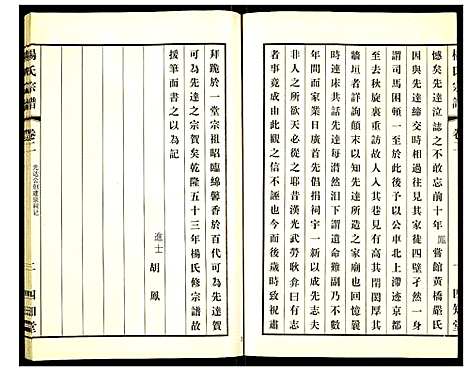 楊氏宗譜 卷二
四知堂
憾矣先達泣誌之不敢忘前十年鳳嘗館黃橋嚴氏
與先達締交時相過往見其家徒四壁孑然一身所
謂司馬困頓一寒至此也乃以公車北上滯迹京都
至去秋旋裏重至故人其巷見有崇其閈閎厚其
牆垣者詳詢顛末以知先達所造之家廟也回憶十
時連床共話先達泣淚下謂遺命難副乃不數
年間而家業日隆首先倡捐祠宇一新以成先志夫
非人之所或期天之所眷耶昔漢光武勞耿弇曰有志
者事竟成由此觀之信不誣也今而後歲時致祝肅
拜跪於一堂宗祖昭臨綿馨香於百代可為先達賀
可為先達之宗賀矣乾隆五十三年楊氏修宗譜故
援筆而書之以為記
進士 胡鳳
楊氏宗譜
卷二
光遠公創建宗祠記
二
四知堂